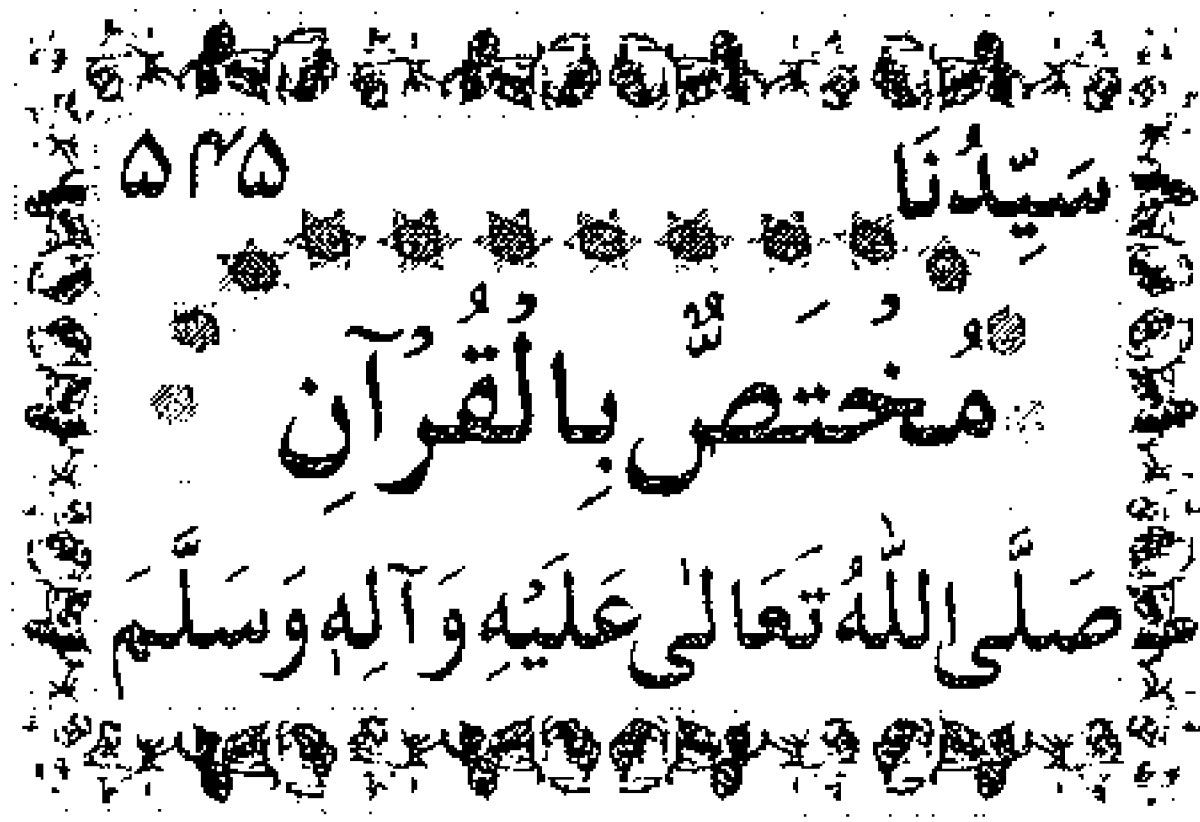 سَيِّدُنَا ۵۴۵
مُخْتَصٌّ بِالْقُرْآنِ
صَلَّى اللّٰهُ تَعَالٰى عَلَيْهِ وَآلِهٖ وَسَلَّمَ